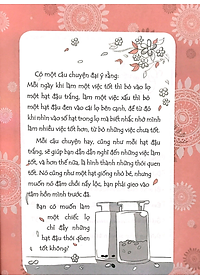 Có một câu chuyện đại ý rằng:
Mỗi ngày khi làm một việc tốt thì bỏ vào lọ
một hạt đậu trắng, làm một việc xấu thì bỏ
một hạt đậu đen vào cái lọ bên cạnh, để từ đó
khi nhìn vào số hạt trong lọ mà biết nhắc nhở mình
làm nhiều việc tốt hơn, từ bỏ những việc chưa tốt.
Mỗi câu chuyện hay, cũng như hạt đậu
trắng, sẽ giúp bạn dần dần nghĩ đến những việc làm
tốt, và hơn thế nữa, là hình thành những thói quen
tốt. Nó cũng như một hạt giống nhỏ bé, nhưng
muốn nó đâm chồi nẩy lộc, bạn phải gieo vào
tâm hồn mình trước đã.
Bạn có muốn làm
một chiếc lọ
chỉ đầy những
hạt đậu thói quen
tốt không?